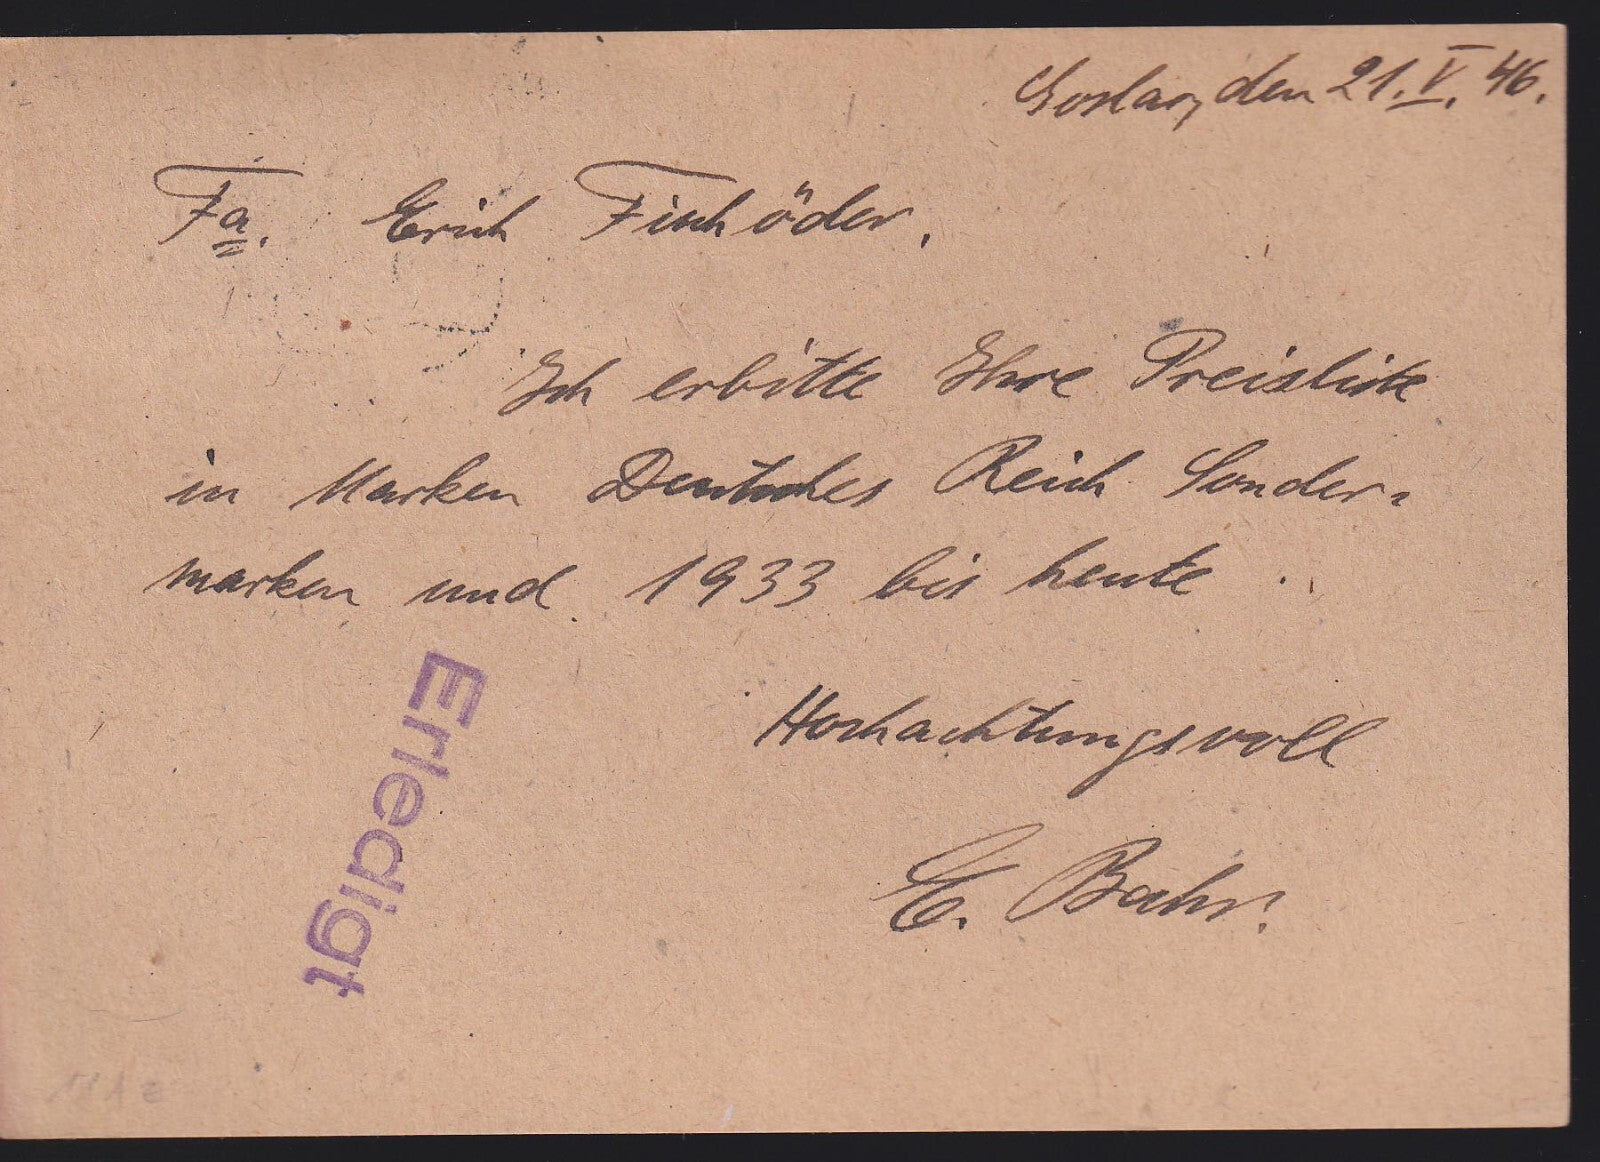 Goslar, den 21. V. 46.
Fa. Erich Finhöder.
Ich erbitte Ihre Preisliste
in Marken Deutsches Reich Sonder-
marken und 1933 bis heute.
Hochachtungsvoll
E. Bahr.
Erledigt